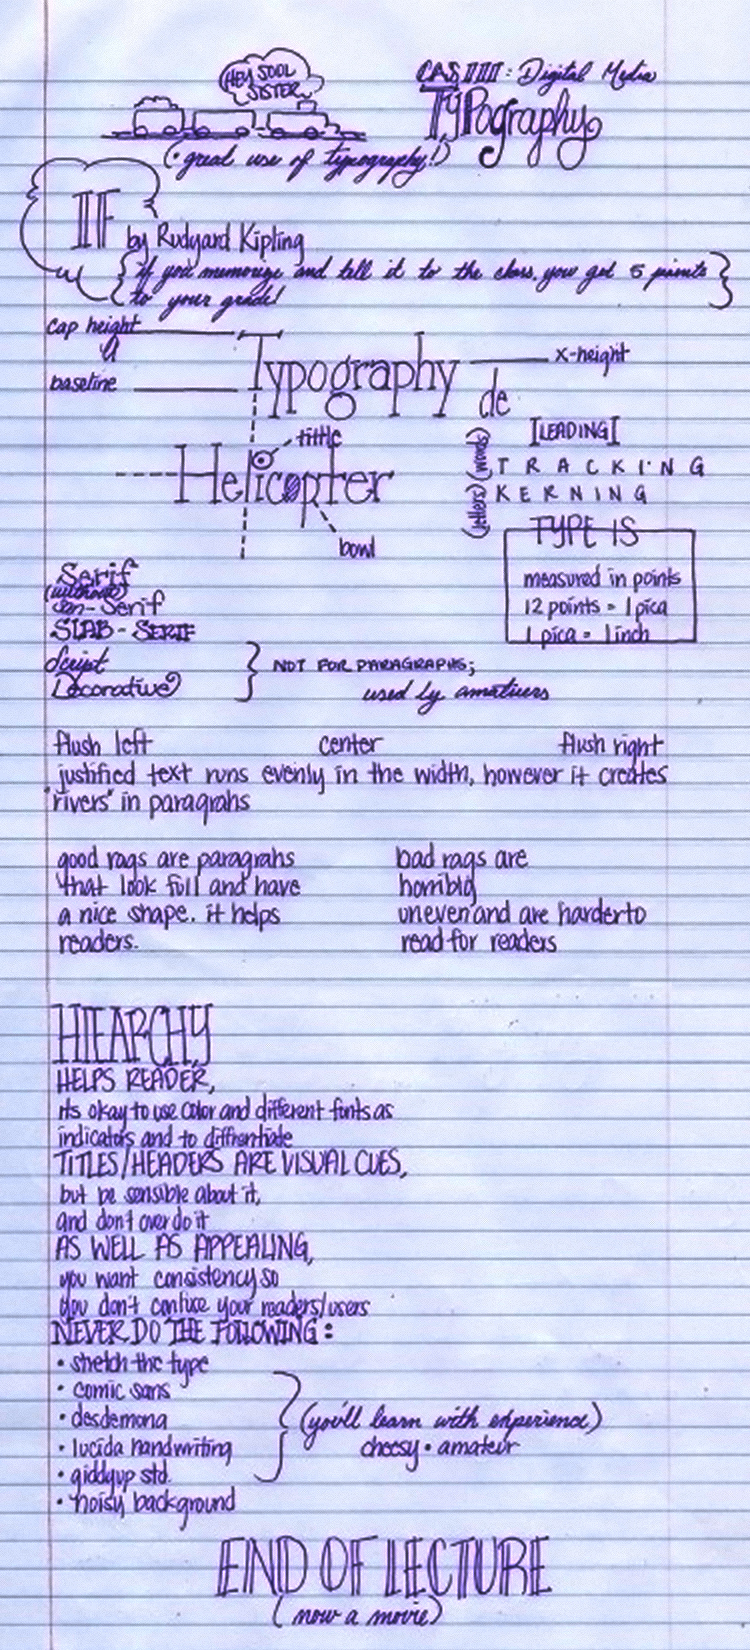 HEY SOUL
SISTER
CAS 111: Digital Media
Typography
(great use of typography!)
IF by Rudyard Kipling
{if you memorize and tell it to the class, you get 5 points
to your grade!}
cap height
a
baseline
Typography
x-height
de
Helicopter
tittle
bowl
[LEADING]
(words) TRACKING
(letters) KERNING
TYPE IS
measured in points
12 points = 1 pica
1 pica = 1 inch
Serif
(without)
San-Serif
SLAB-SERIF
Script
Decorative
} NOT FOR PARAGRAPHS;
used by amatuers
flush left center flush right
justified text runs evenly in the width, however it creates
"rivers" in paragrahs
good rags are paragrahs
that look full and have
a nice shape. it helps
readers.
bad rags are
horribly
uneven and are harder to
read for readers
HIEARCHY
HELPS READER,
its okay to use color and different fonts as
indicators and to diffrentiate
TITLES/HEADERS ARE VISUAL CUES,
but be sensible about it,
and don't over do it
AS WELL AS APPEALING,
you want consistency so
you don't confuse your readers/users
NEVER DO THE FOLLOWING:
• stretch the type
• comic sans
• desdemona
• lucida handwriting
• giddyup std.
• noisy background
(you'll learn with experience)
cheesy • amateur
END OF LECTURE
(now a movie)